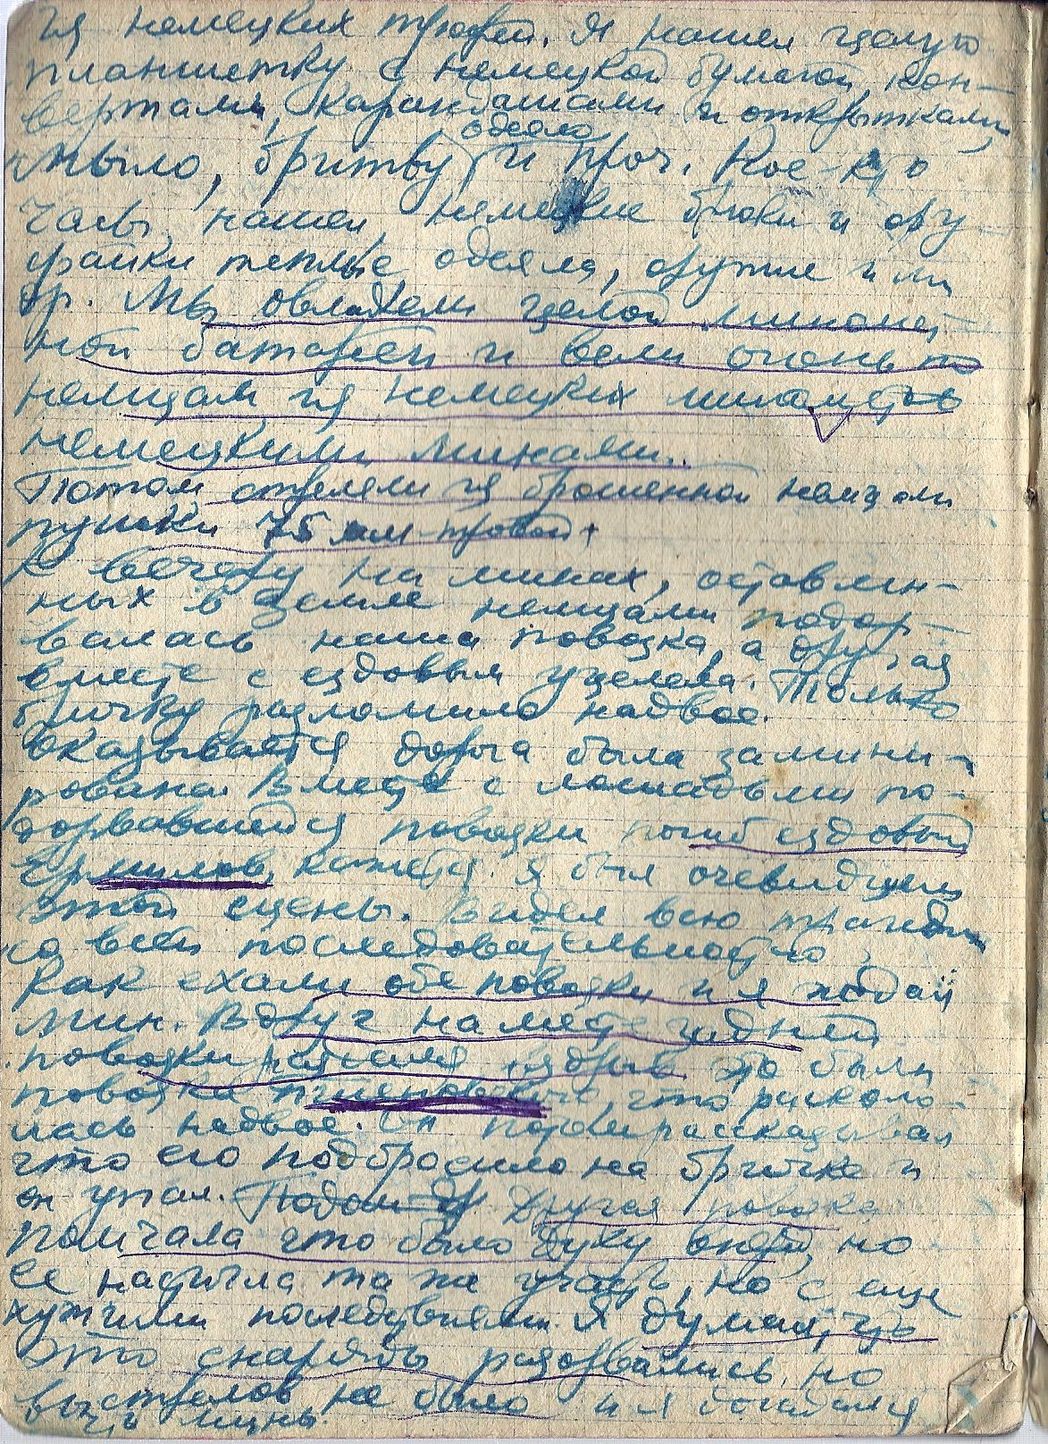 из немецких трофей. Я нашел целую
планшетку с немецкой бумагой, кон-
вертами, карандашами и открытками,
одеяло
мыло, бритву и проч. Кое-кто
часы нашел, немецкие брюки и фу-
ражки теплые одеяла, оружие и мн
др. Мы овладели целой миномет-
ной батареей и вели огонь по
немцам из немецких минометов
немецкими минами.
Потом стреляли из брошенной немцами
пушки 75 мм
К вечеру на минах, оставлен-
ных в земле немцами подор-
валась наша повозка, а другая
вместе с ездовым уцелела. Только
бричку разломило надвое.
Оказывается дорога была замини-
рована. Вместе с лошадьми по-
дорвавшейся повозки погиб ездовый
Ермилов, кажется. Я был очевидцем
этой сцены. Видел всю трагедию
со всей последовательностью,
Как ехали обе повозки и я
мин. Вдруг на месте задней
повозки взрыв это была
повозка что раскало-
лась надвое. Он потом рассказывал
что его подбросило на бричке и
он упал. Другая повозка
помчала что было духу вперед, но
ее настигла та же участь, но с еще
худшими последствиями. Я думал, что
это снаряды разорвались, но
выстрелов не было и я догадался
что мины.